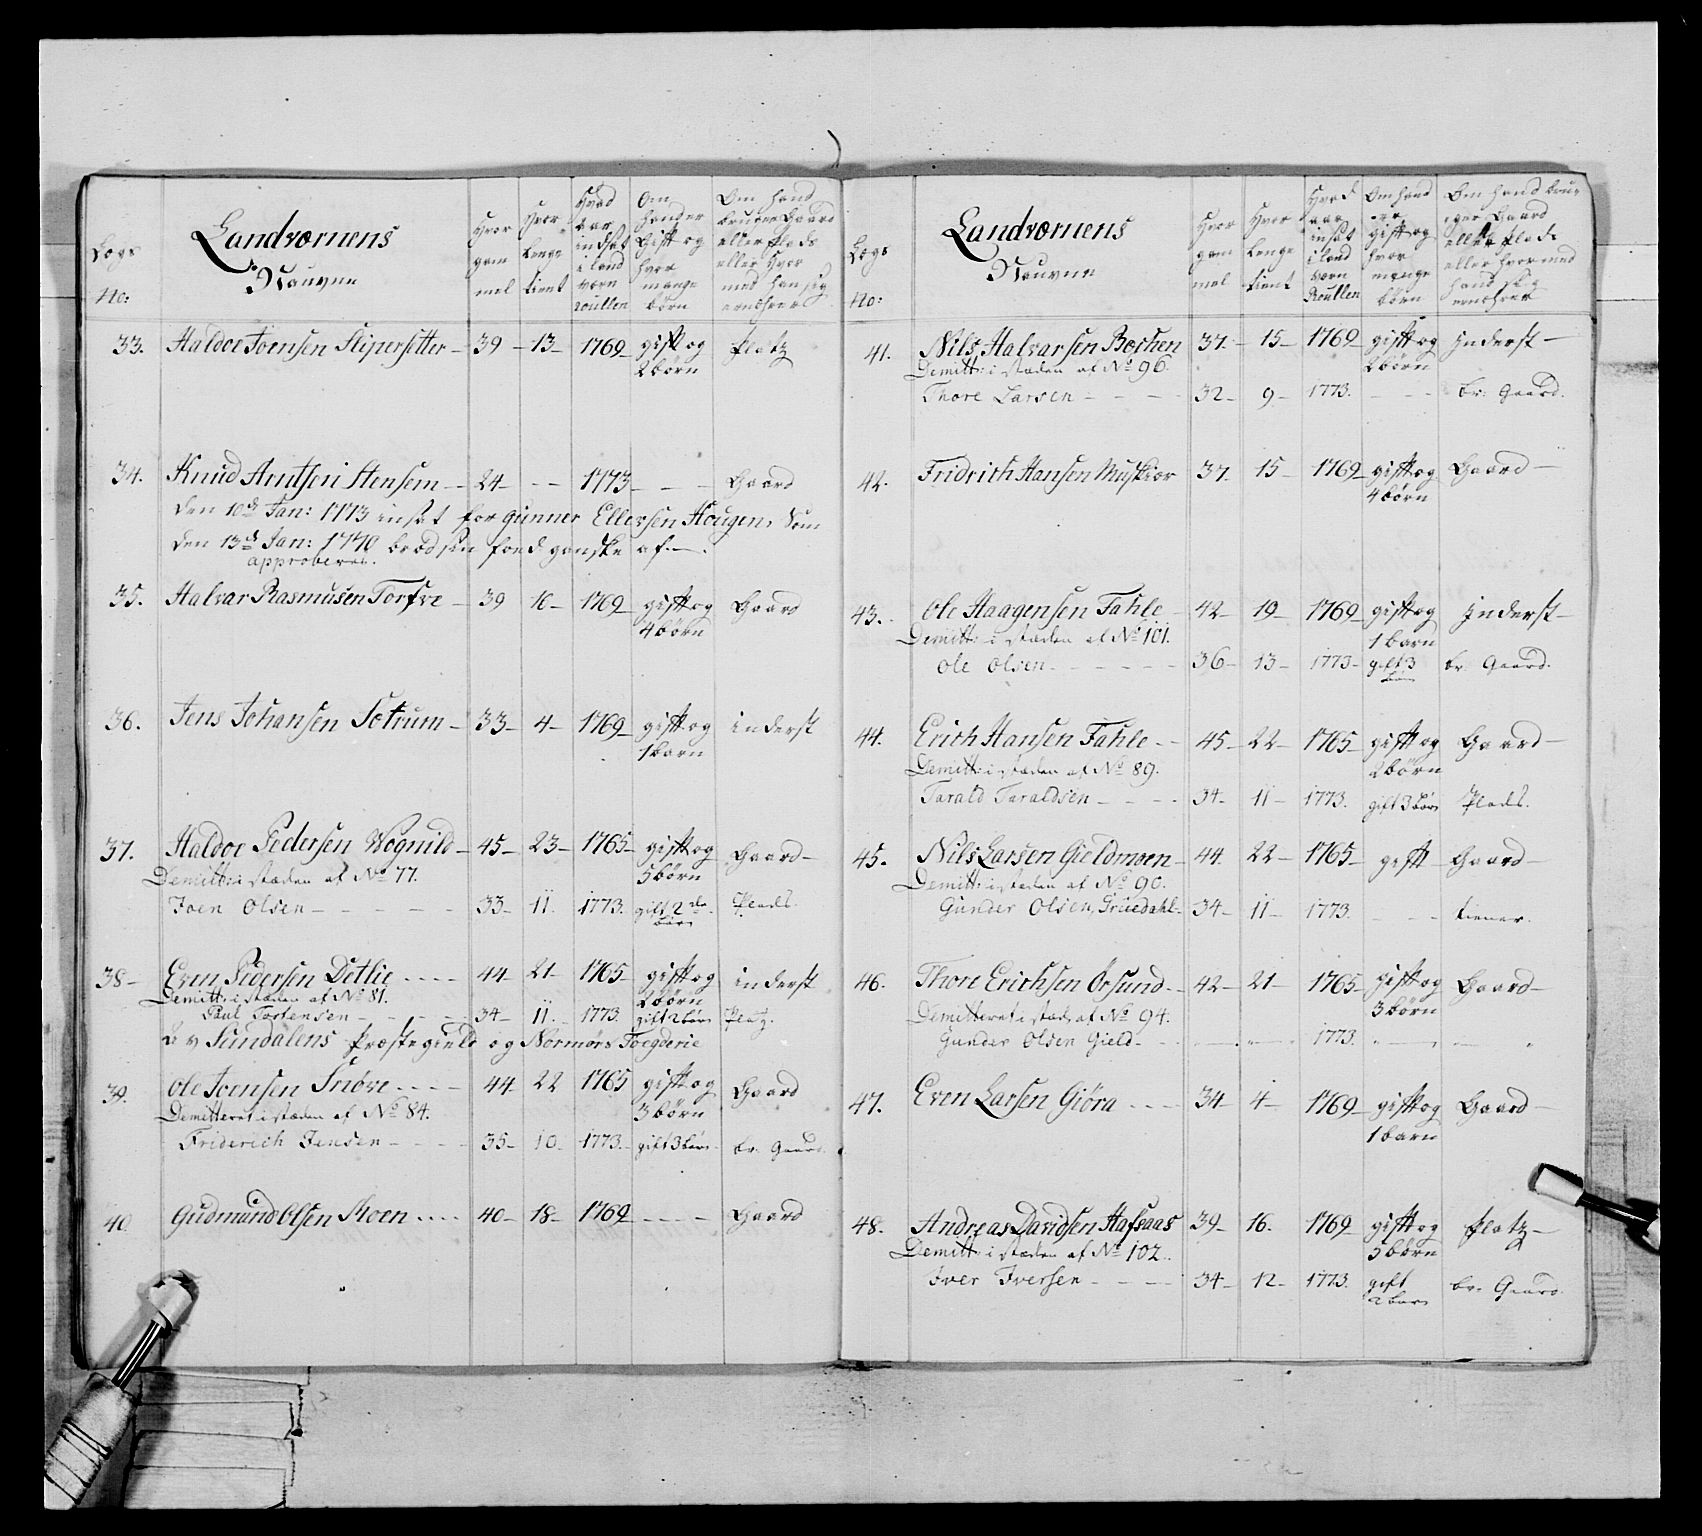 Lægs No:
Landværnens Nauvne
Hvor gam mel
Hvor Lenge tient
Hvad aar indsat i land værn roullen
Om hand er Gift og hvor mange børn
Om hand bruger Gaard eller plads eller hvor med han sig ernæhrer
33. Haldor Joensen Slipersetter – 39 – 13 – 1769 gift og 2 børn platz
34. Knud Arntsen Stensem – 24 – – – 1773 – – – Gaard
den 10de Jan: 1773 insat for Gunner Ellevsen Hougen, som
den 13de Jan: 1770 brød sin fod ganske af.
approberes.
35. Halvar Rasmusen Torfve – 39 16 – 1769 gift og 4 børn Gaard
36. Jens Johansen Sotrum – 33 – 4 – 1769 gift og 1 barn inderst
37. Haldor Pedersen Vognild – 45 – 23 – 1765 gift og 5 børn Gaard –
Demitt: i stæden af No 77.
Joen Olsen – – – – 33 – 11. 1773. gift 2de børn Plads.
38 – Even Pedersen Detlie . . . . 44 – 21 – 1765 gift og 2 børn inderst
Demitt: i stæden af No 81.
Paul Tostensen – – – – 34 – 11. – 1773. gift 2 børn Platz.
Sundalens Præstegield og Normørs Foegderie
39. Ole Joensen Snøve . . . . 44 22 1765 gift og 3 børn Gaard
Demitteret i stæden af No 84.
Friderich Jensen – – – – 35 – 10 – 1773. gift 3 børn br. Gaard.
40 Gudmund Olsen Moen . . . . 40 – 18 – 1769 – – – – Gaard
Lægs No:
Landværnens Nauvne
Hvor gam mel
Hvor Lenge tient
Hvad aar insat i land værn Roullen
Om hand er gift og hvor mange børn
Om hand bru- ger Gaard eller plads eller hvormed hand sig ernæhrer
41. Nils Halvarsen Boshen 37. – 15 – 1769 gift og 2 børn Inderst –
Demitt: i stæden af No 96.
Thore Larsen – – – – 32 – 9 – 1773. – – – br: Gaard.
42. Fridrich Hansen Muskior 37. 15 – 1769 gift og 4 børn Gaard –
43. Ole Haagensen Fahle – 42 – 19 – 1769 gift og 1 barn Inderst –
Demitt: i stæden af No 101.
Ole Olsen – – – – – – 36 – 13 – 1773 – gift 3 børn br. Gaard.
44. Erich Hansen Fahle – – 45 – 22 – 1765 gift og 2 børn Gaard –
Demitt: i stæden af No 89.
Tarald Taraldsen – – – – 34 – 11 – 1773. gift 3 børn Plads.
45. Nils Larsen Gieldmoen – 44. 22 – 1765 – gift Gaard –
Demitt: i stæden af No 90.
Gunder Olsen Gruedahl – 34 – 11 – 1773. – – tiener.
46. Thore Erichsen Ørsund – 42 – 21 – 1765 – gift og 3 børn Gaard –
Demitteret i stæd: af No 94.
Gunder Olsen Gield – – – – 1773. – –
47. Even Larsen Giöra – – – 34 – 4 – 1769 – gift og 1 barn Gaard –
48. Andreas Davidsen Hafsaas 39 – 16. 1769 gift og 5 børn platz –
Demitt: i stæden af No 102.
Iver Iversen – – – – 34 – 12 – 1773. gift 2 børn br. Gaard.